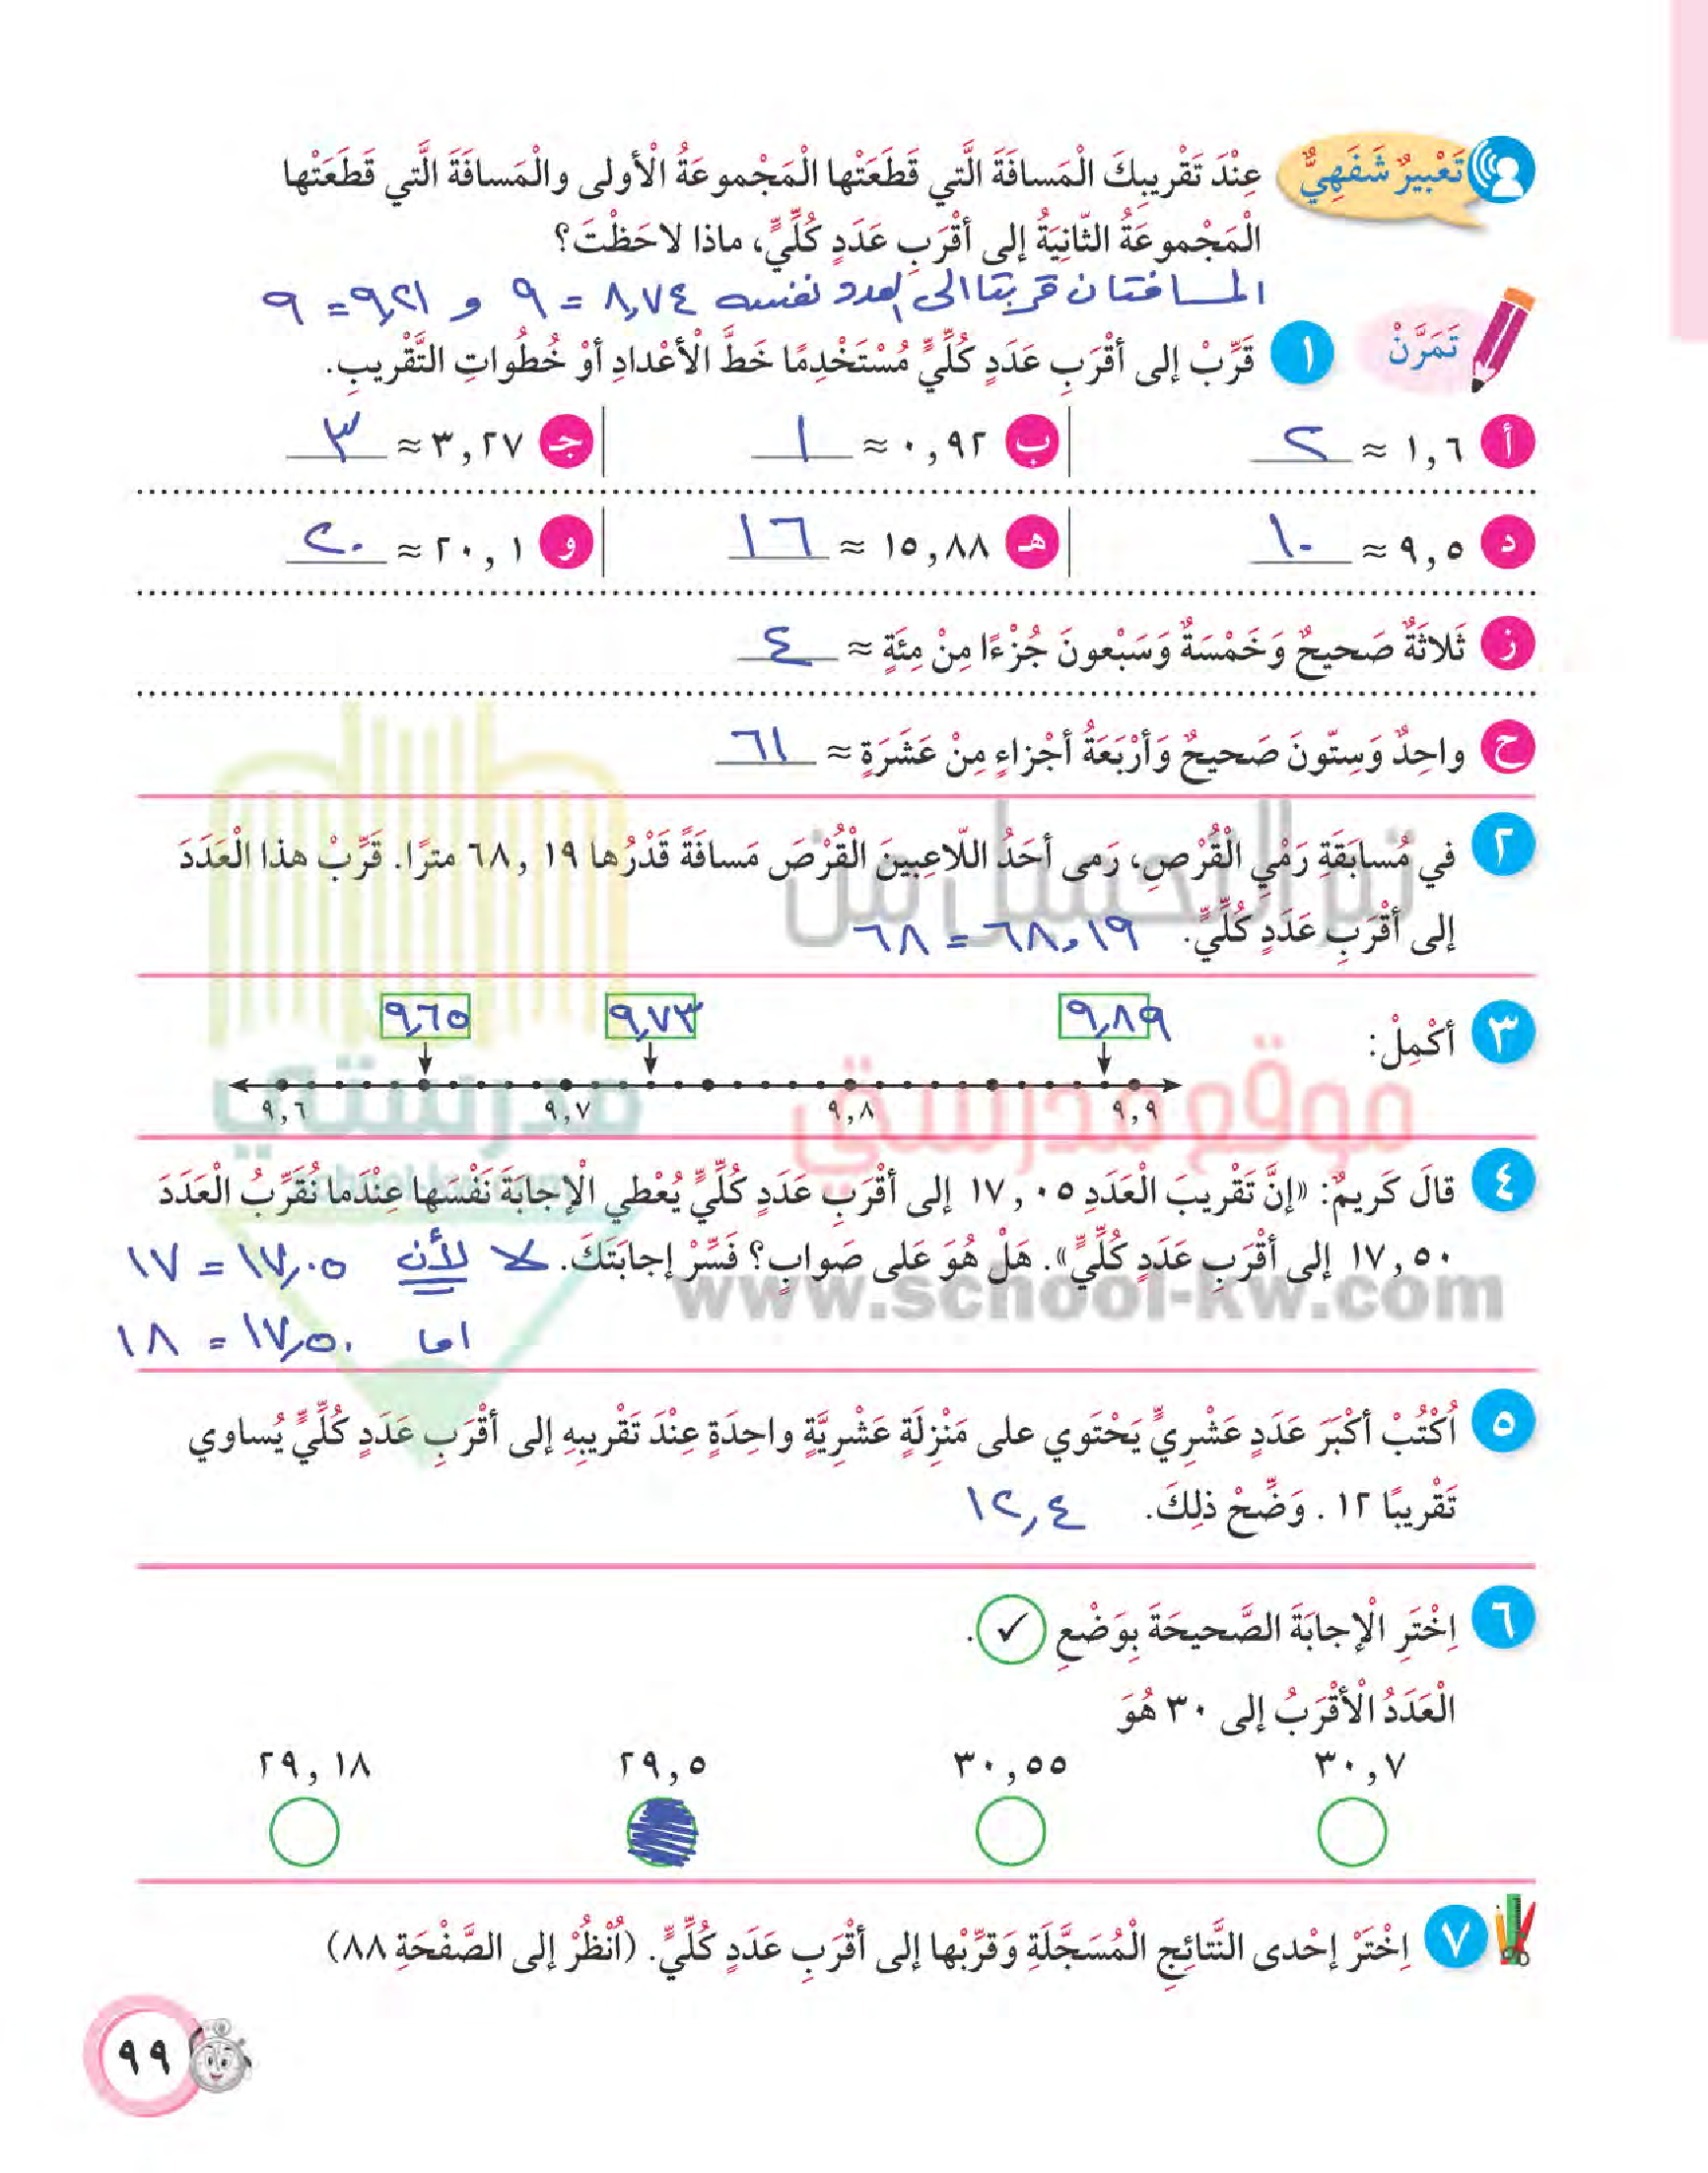 تَعْبيرٌ شَفَهِيٌّ عِنْدَ تَقْريبِكَ الْمَسافَةَ الَّتي قَطَعَتْها الْمَجْموعَةُ الْأولى والْمَسافَةَ الَّتي قَطَعَتْها
الْمَجْموعَةُ الثّانِيَةُ إلى أقْرَبِ عَدَدٍ كُلِّيٍّ، ماذا لاحَظْتَ؟
المسافتان قربتا الى العدد نفسه ٨,٧٤ = ٩ و ٩,٢١ = ٩
تَمَرَّنْ ١ قَرِّبْ إلى أقْرَبِ عَدَدٍ كُلِّيٍّ مُسْتَخْدِمًا خَطَّ الْأعْدادِ أوْ خُطُواتِ التَّقْريبِ.
أ ١,٦ ≈ ٢ ب ٠,٩٢ ≈ ١ جـ ٣,٢٧ ≈ ٣
د ٩,٥ ≈ ١٠ هـ ١٥,٨٨ ≈ ١٦ و ٢٠,١ ≈ ٢٠
ز ثَلاثَةٌ صَحيحٌ وَخَمْسَةٌ وَسَبْعونَ جُزْءًا مِنْ مِئَةٍ ≈ ٤
ح واحِدٌ وَسِتّونَ صَحيحٌ وَأرْبَعَةُ أجْزاءٍ مِنْ عَشَرَةٍ ≈ ٦١
٢ في مُسابَقَةِ رَمْيِ الْقُرْصِ، رَمى أحَدُ اللّاعِبينَ الْقُرْصَ مَسافَةً قَدْرُها ٦٨,١٩ مترًا. قَرِّبْ هذا الْعَدَدَ
إلى أقْرَبِ عَدَدٍ كُلِّيٍّ. ٦٨,١٩ = ٦٨
تم التحميل من
٩,٦٥ ٩,٧٣ ٩,٨٩
٣ أكْمِلْ:
٩,٦ ٩,٧ ٩,٨ ٩,٩
موقع مدرستي
مدرستي
٤ قالَ كَريمٌ: «إنَّ تَقْريبَ الْعَدَدِ ١٧,٠٥ إلى أقْرَبِ عَدَدٍ كُلِّيٍّ يُعْطي الْإجابَةَ نَفْسَها عِنْدَما نُقَرِّبُ الْعَدَدَ
١٧,٥٠ إلى أقْرَبِ عَدَدٍ كُلِّيٍّ». هَلْ هُوَ عَلى صَوابٍ؟ فَسِّرْ إجابَتَكَ. لا لأن ١٧,٠٥ = ١٧
www.school-kw.com
اما ١٧,٥٠ = ١٨
٥ اُكْتُبْ أكْبَرَ عَدَدٍ عَشْرِيٍّ يَحْتَوي على مَنْزِلَةٍ عَشْرِيَّةٍ واحِدَةٍ عِنْدَ تَقْريبِهِ إلى أقْرَبِ عَدَدٍ كُلِّيٍّ يُساوي
تَقْريبًا ١٢ . وَضِّحْ ذلِكَ. ١٢,٤
٦ اِخْتَرِ الْإجابَةَ الصَّحيحَةَ بِوَضْعِ ✓ .
الْعَدَدُ الْأقْرَبُ إلى ٣٠ هُوَ
٣٠,٧ ٣٠,٥٥ ٢٩,٥ ٢٩,١٨
٧ اِخْتَرْ إحْدى النَّتائِجِ الْمُسَجَّلَةِ وَقرِّبْها إلى أقْرَبِ عَدَدٍ كُلِّيٍّ. (اُنْظُرْ إلى الصَّفْحَةِ ٨٨)
٩٩